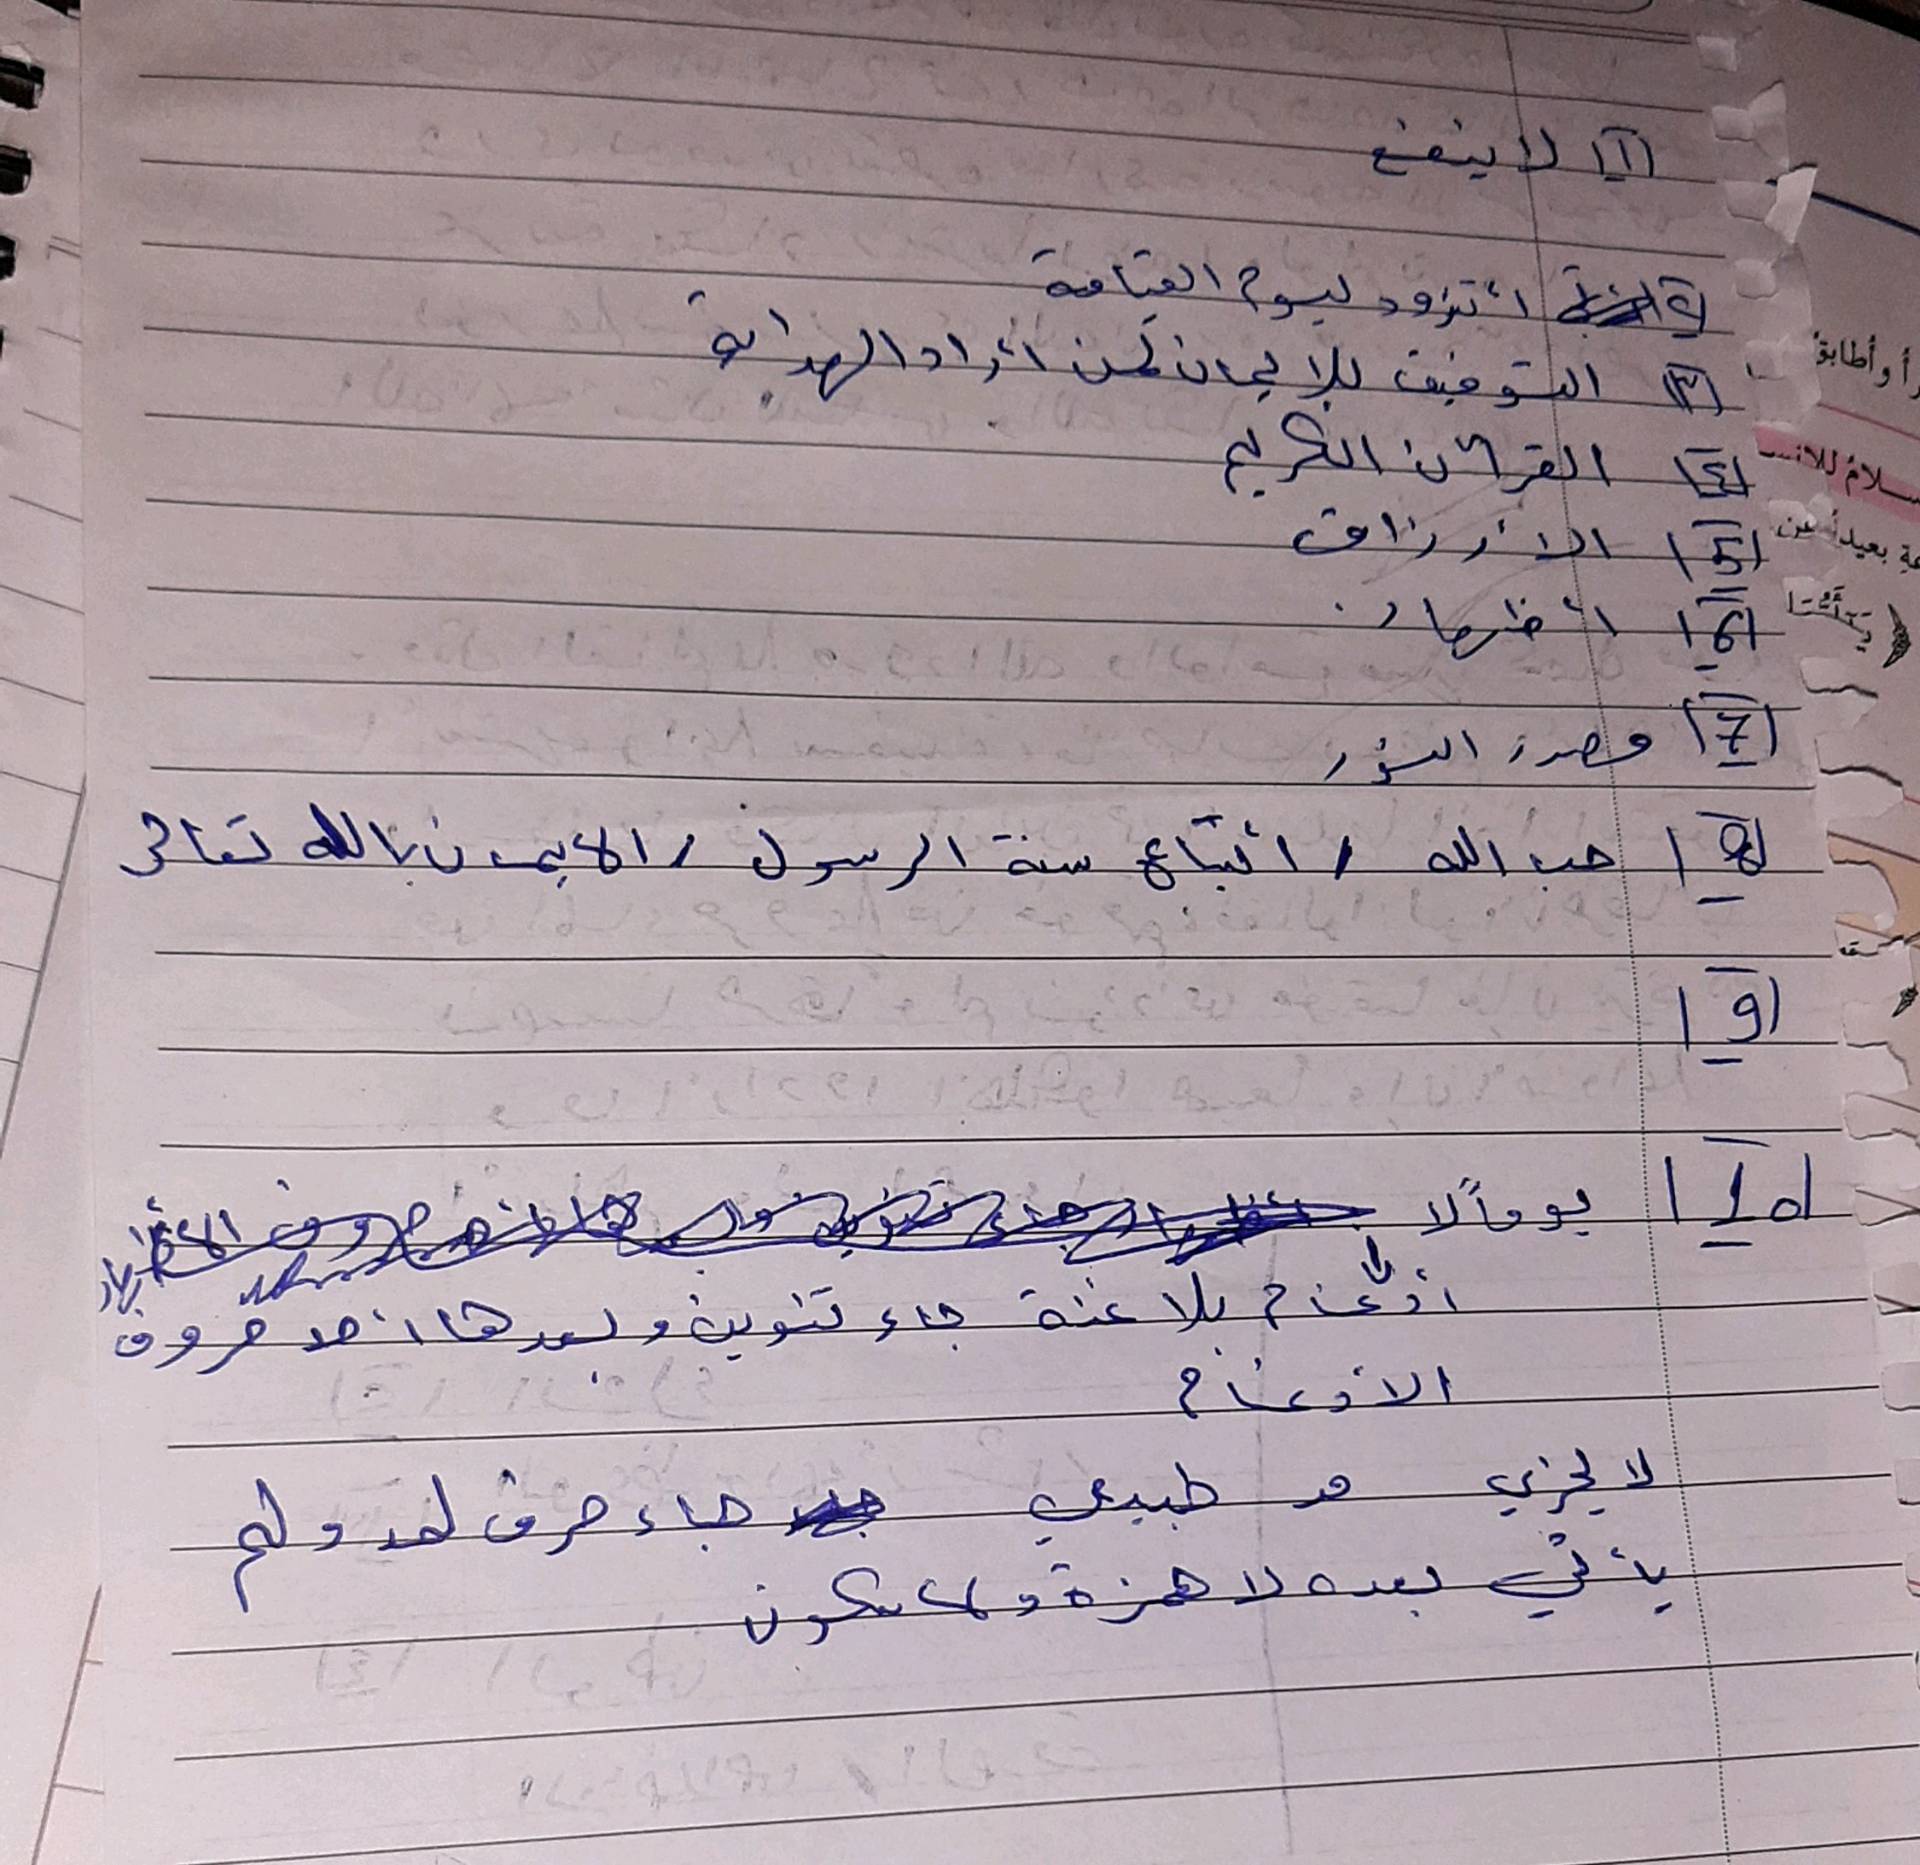 1 لا ينفع
2 أتزود ليوم القيامة
3 التوفيق للإيمان لمن أراد الهداية
4 القرآن الكريم
5 الأرزاق
6 أظهار
7 مصدر السؤر
8 حب الله / أتباع سنة الرسول / الايمان بالله تعالى
9
10 يوماً لا
أدغام بلا غنة جاء تنوين و بعدها أحد حروف
الأدغام
لا يجزي مد طبيعي جاء حرف لمد و لم
يأتي بعده لا همزة ولا سكون
رأ وأطابق
سلام للانس
عة بعيداً عن